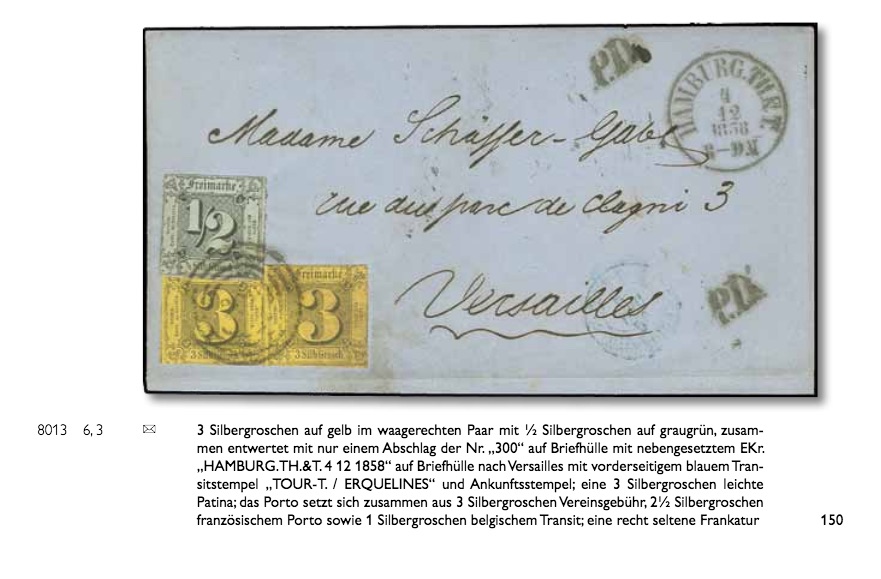 P.D.
HAMBURG.TH.&T.
4
12
1858
Madame Schäffer-
rue du parc de Clagni 3
Versailles
P.D.
Freimarke
1/2
Freimarke
3
3
3 Silb. Grosch.
8013 6, 3 ✉ 3 Silbergroschen auf gelb im waagerechten Paar mit ½ Silbergroschen auf graugrün, zusam-
men entwertet mit nur einem Abschlag der Nr. „300“ auf Briefhülle mit nebengesetztem EKr.
„HAMBURG.TH.&T. 4 12 1858“ auf Briefhülle nach Versailles mit vorderseitigem blauem Tran-
sitstempel „TOUR-T. / ERQUELINES“ und Ankunftsstempel; eine 3 Silbergroschen leichte
Patina; das Porto setzt sich zusammen aus 3 Silbergroschen Vereinsgebühr, 2½ Silbergroschen
französischem Porto sowie 1 Silbergroschen belgischem Transit; eine recht seltene Frankatur 150